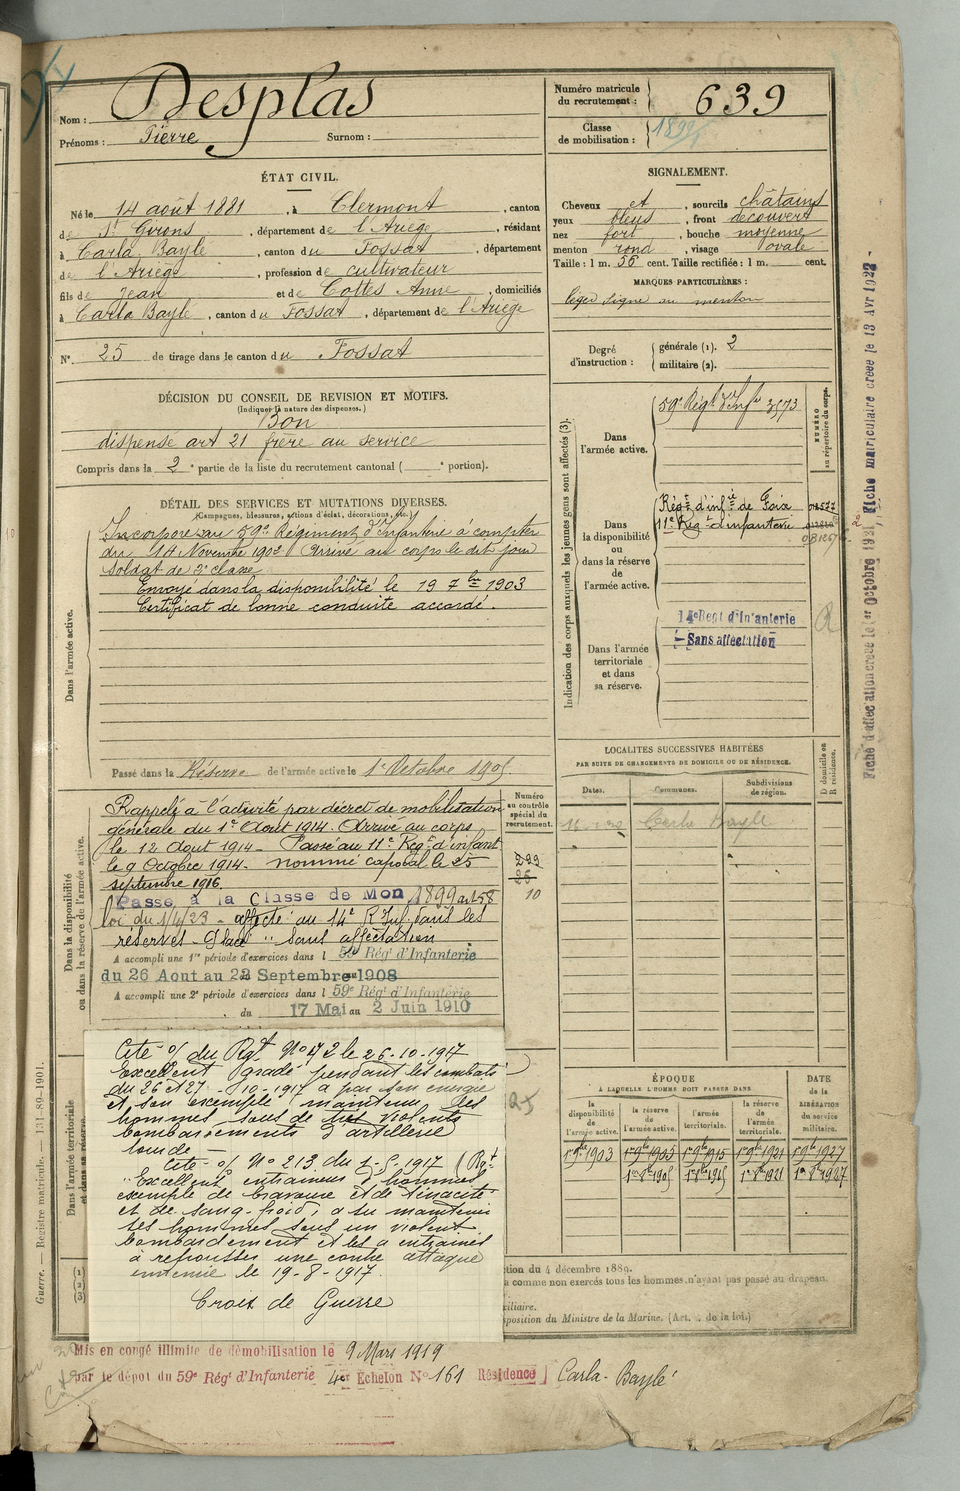 Nom : Desplas
Prénoms : Pierre Surnom :
Numéro matricule du recrutement : 639
Classe de mobilisation : 1899
ÉTAT CIVIL.
Né le 14 août 1881, à Clermont, canton
de St Girons, département de l'Ariège, résidant
à Carla Bayle, canton du Fossat, département
de l'Ariège, profession de cultivateur
fils de Jean et de Cottes Anne, domiciliés
à Carla Bayle, canton du Fossat, département de l'Ariège
N° 25 de tirage dans le canton du Fossat
SIGNALEMENT.
Cheveux et, sourcils châtains
yeux bleus, front découvert
nez fort, bouche moyenne
menton rond, visage ovale
Taille : 1 m. 56 cent. Taille rectifiée : 1 m. cent.
MARQUES PARTICULIÈRES :
au menton
Degré d'instruction : générale (1). 2
militaire (2).
DÉCISION DU CONSEIL DE REVISION ET MOTIFS.
(Indiquer la nature des dispenses.)
Bon
dispense art 21 frère au service
Compris dans la 2e partie de la liste du recrutement cantonal ( e portion).
DÉTAIL DES SERVICES ET MUTATIONS DIVERSES.
(Campagnes, blessures, actions d'éclat, décorations, etc.)
Dans l'armée active.
Incorporé au 59e Régiment d'Infanterie à compter
du 14 Novembre 1902 Arrivé au corps le dit jour
Soldat de 2e classe
Envoyé dans la disponibilité le 19 7bre 1903
Certificat de bonne conduite accordé.
Passé dans la Réserve de l'armée active le 1er Octobre 1905
Dans la disponibilité ou dans la réserve de l'armée active.
Rappelé à l'activité par décret de mobilisation
générale du 1er Aout 1914. Arrivé au corps
le 12 Aout 1914 - Passé au 11e Régt d'infant
le 9 Octobre 1914 - nommé caporal le 25
septembre 1916.
Passé à la Classe de Mon 1899 art 58
loi du 1/4/23 - affecté au 14e R Inf. dans les
réserves - Placé " sans affectation
A accompli une 1re période d'exercices dans l 59e Régt d'Infanterie
du 26 Aout au 22 Septembre 1908
A accompli une 2e période d'exercices dans l 59e Régt d'Infanterie
du 17 Mai au 2 Juin 1910
Numéro au contrôle spécial du recrutement.
299
10
Indication des corps auxquels les jeunes gens sont affectés (3).
Dans l'armée active. 59e Régt d'Infie 3573
NUMÉRO au répertoire du corps.
Dans la disponibilité ou dans la réserve de l'armée active.
Régt d'infie de Foix
11e Régt d'infanterie
Dans l'armée territoriale et dans sa réserve.
14e Regt d'Infanterie
Sans affectation
Fiche d'affectation creee le 1er Octobre 1921
Fiche matriculaire creee le 13 Avr 1922
LOCALITÉS SUCCESSIVES HABITÉES
PAR SUITE DE CHANGEMENTS DE DOMICILE OU DE RÉSIDENCE.
Dates. Communes. Subdivisions de région.
D domicile ou R résidence.
Carla Bayle
ÉPOQUE
À LAQUELLE L'HOMME DOIT PASSER DANS
la disponibilité de l'armée active.
la réserve de l'armée active.
l'armée territoriale.
la réserve de l'armée territoriale.
DATE de la LIBÉRATION du service militaire.
1er 9bre 1903 1er 9bre 1905 1er 9bre 1915 1er 9bre 1921 1er 9bre 1927
1er 8bre 1905 1er 8bre 1915 1er 8bre 1921 1er 8bre 1927
Dans l'armée territoriale et dans sa réserve
Cité o/ du Rgt. N° 472 le 26-10-1917
Excellent gradé pendant les combats
du 26 et 27-10-1917 a par son énergie
et son exemple maintenu les
hommes sous de très violents
bombardements d'artillerie
lourde -
Cité o/ N° 213 du 1-9-1917 (Rgt
"Excellent entraineur d'hommes
exemple de bravoure et de ténacité
et de sang-froid, a su maintenir
ses hommes sous un violent
bombardement et les a entrainés
à repousser une contre attaque
ennemie le 19-8-1917.
Croix de Guerre
du 4 décembre 1889.
comme non exercés tous les hommes n'ayant pas passé au drapeau.
sposition du Ministre de la Marine. (Art. de la loi.)
Guerre. — Registre matricule. — 131-89-1901.
Mis en congé illimité de démobilisation le 9 Mars 1919
par le dépôt du 59e Régt d'Infanterie 4e Echelon N° 161 Résidence Carla-Bayle